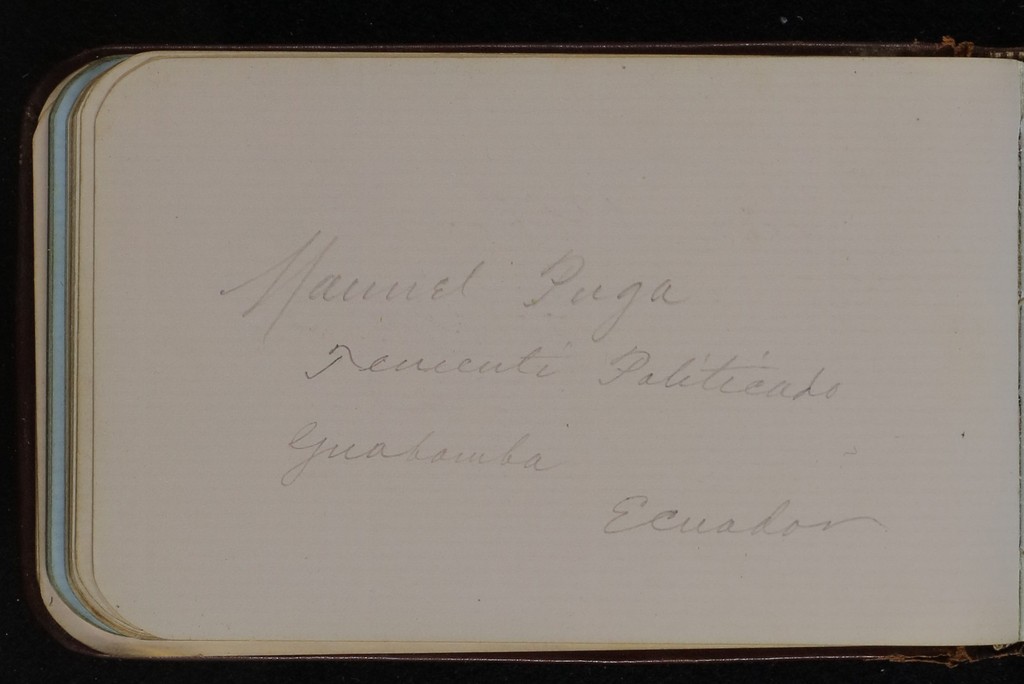 Manuel Puga
Tenienti Politicado
Guabamba
Ecuador